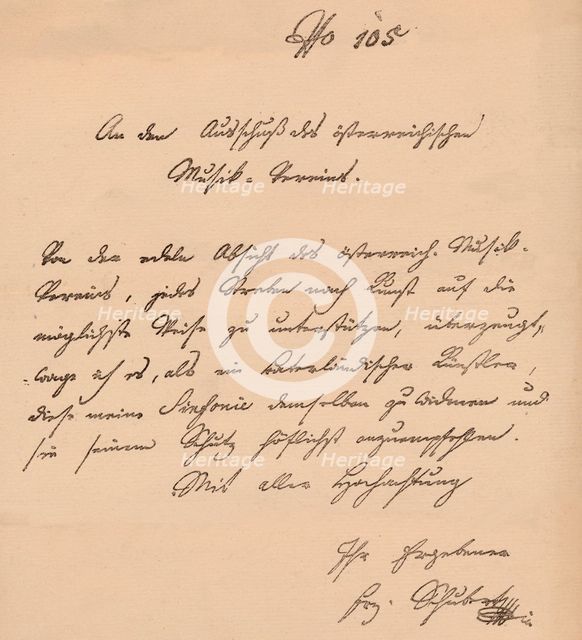 No 105
An den Ausschuß des österreichischen
Musik-Vereins.
Von der edeln Absicht des österreich. Musik-
Vereins, jedes Streben nach Kunst auf die
möglichste Weise zu unterstützen, überzeugt,
wage ich es, als ein vaterländischer Künstler,
diese meine Sinfonie demselben zu widmen und
sie seinem Schutz höflichst anzuempfehlen.
Mit aller Hochachtung
Ihr Ergebener
Frz. Schubert
Heritage
Heritage
Heritage
Heritage
Heritage
Heritage
Heritage
Heritage